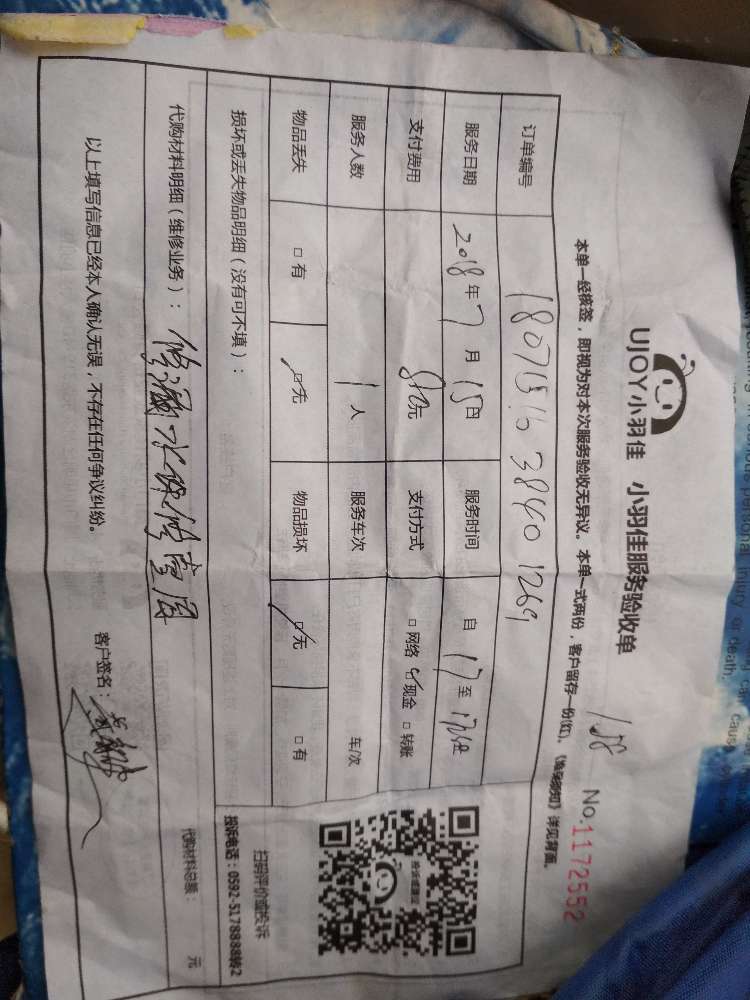 UJOY小羽佳 小羽佳服务验收单
158
No.1172552
本单一经核签，即视为对本次服务验收无异议。本单一式两份，客户留存一份(红)，《准保须知》详见背面。
订单编号
服务日期 2018年7月15日 服务时间 自 17 至
支付费用 元 支付方式 □网络 现金 □转账
服务人数 1人 服务车次 车/次
物品丢失 □有 □无 物品损坏 □无 □有
损坏或丢失物品明细（没有可不填）：
扫码评价或投诉
投诉电话：0592-5178888转2
代购材料明细（维修业务）：
代购材料总额： 元
以上填写信息已经本人确认无误，不存在任何争议纠纷。
客户签名：